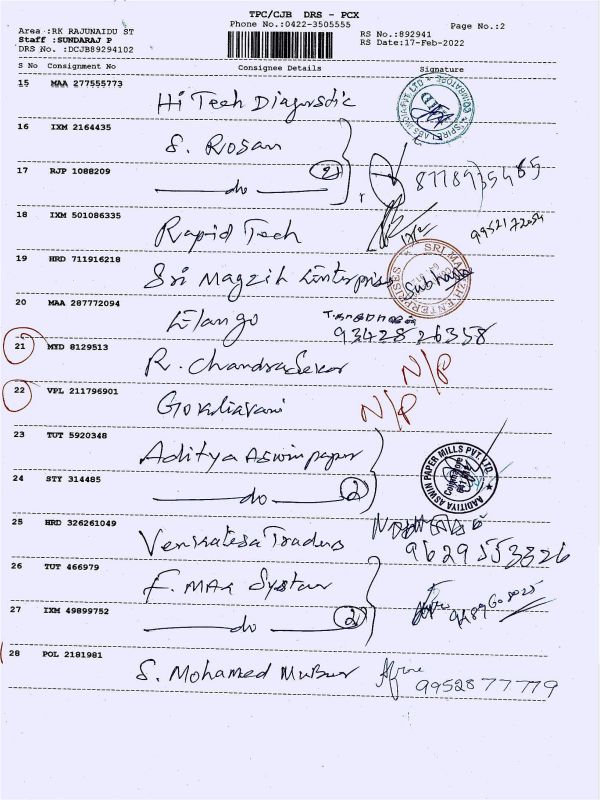 TPC/CJB DRS - PCX
Phone No.:0422-3505555
Page No.:2
Area :RK RAJUNAIDU ST
Staff :SUNDARAJ P
DRS No. :DCJB89294102
RS No.:892941
RS Date:17-Feb-2022
S No Consignment No Consignee Details Signature
15 MAA 277555773
Hi Tech Diagnostic
16 IXM 2164435
S. Rosan
17 RJP 1088209
do (2)
18 IXM 501086335
Rapid Tech
9952172054
19 HRD 711916218
Sri Magzih Enterprises
Subhasa
20 MAA 287772094
Elango
9342826358
21 MYD 8129513
R. Chandrasekar N/P
22 VPL 211796901
N/P
23 TUT 5920348
Aditya Aswin paper
AADITIYA ASWIN PAPER MILLS PVT. LTD.
24 STY 314485
do (2)
25 HRD 326261049
Venkatesa Traders
9629553826
26 TUT 466979
F. MAX System
27 IXM 49899752
do (2)
28 POL 2181981
S. Mohamed
9952877779